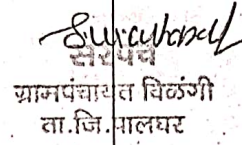 सरपंच
ग्रामपंचायत विळंगी
ता.जि.पालघर